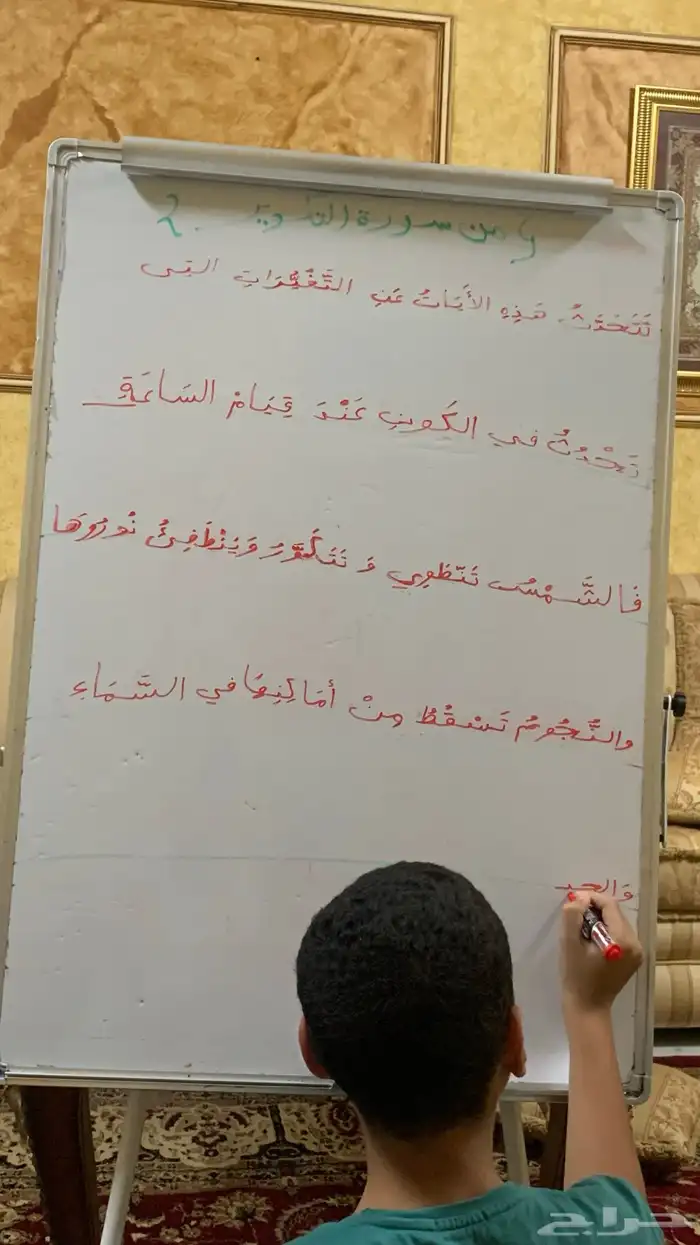 من سورة التكوير
تَتَحَدَّثُ هَذِهِ الأَيَاتُ عَنِ التَّغَيُّرَاتِ التِى
تَحْدُثُ في الكَونِ عَنْدَ قِيَامْ السَاعَةِ
فَالشَّمْسُ تَنّطَوِي وَ تَتَكَوَّرُ وَيَنْطَفِئُ نُورُوهَا
والنُّجُومُ تَسْقُطُ مِنْ أمَاكِنِهَا في السَّمَاءِ
وَالجبـ
حراج